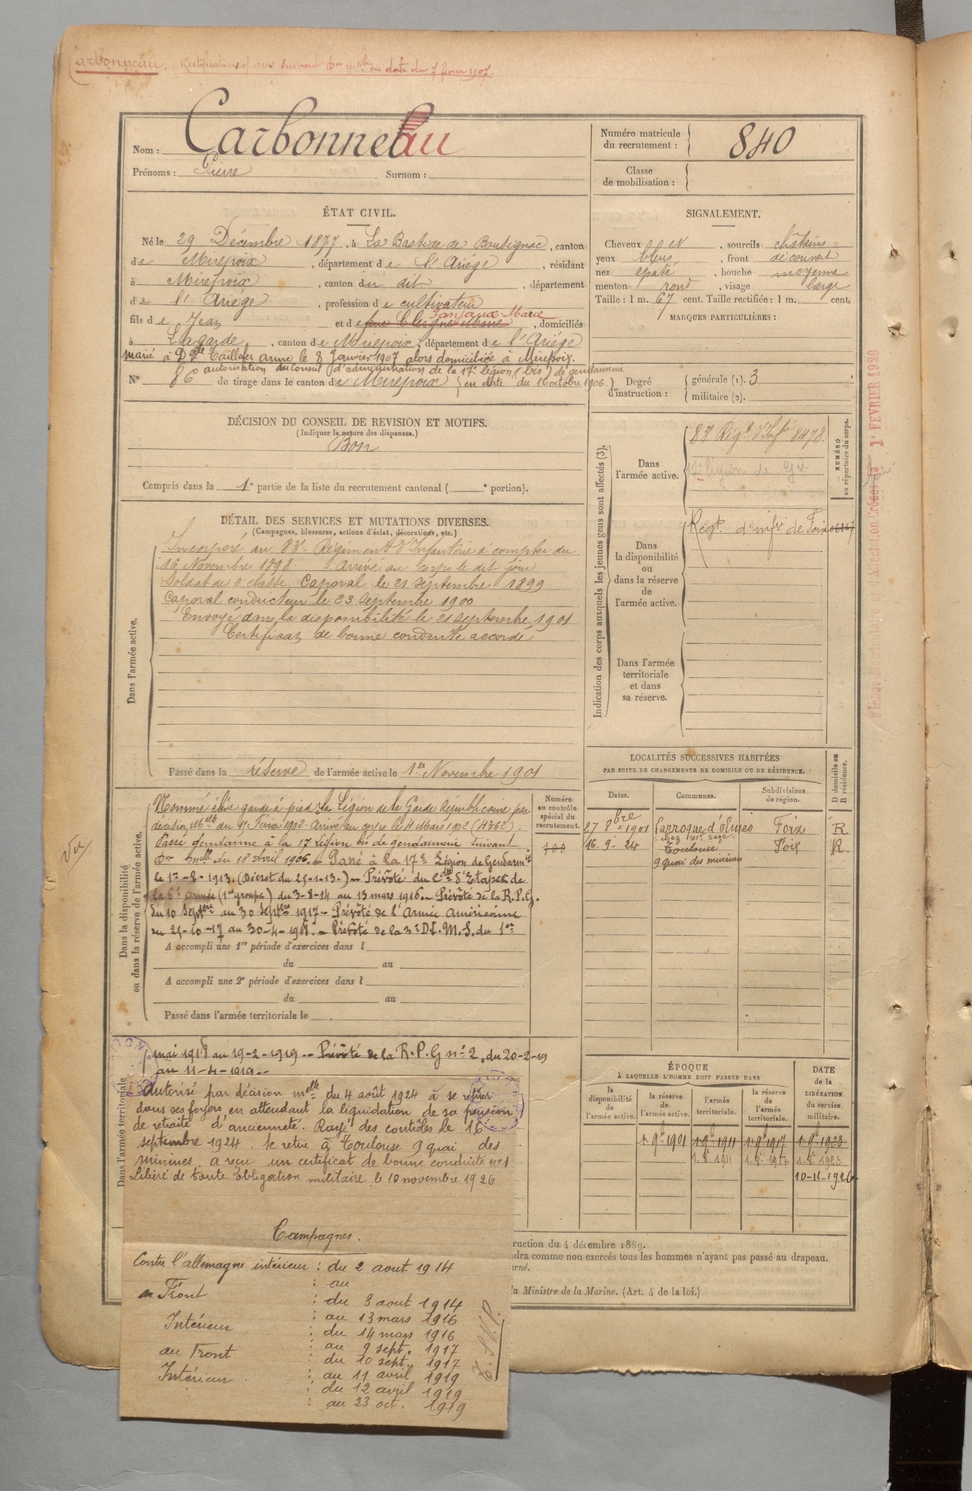 Carbonneau. Rectification suivant D^on m^elle en date du 7 février 1907
Nom : Carbonneau
Prénoms : Pierre Surnom :
Numéro matricule du recrutement : 840
Classe de mobilisation :
ÉTAT CIVIL.
Né le 29 Décembre 1877, à La Bastide de Bousignac, canton
de Mirepoix, département de l'Ariège, résidant
à Mirepoix, canton du dit, département
de l'Ariège, profession de cultivateur
fils de Jean et de Janjaux Marie, domiciliés
à Lagarde, canton de Mirepoix, département de l'Ariège
marié à D^lle Taillefer Anne le 8 Janvier 1907 alors domiciliée à Mirepoix.
autorisation du Conseil d'administration de la 17^e légion (bis) de gendarmerie
N° 86 de tirage dans le canton de Mirepoix (en date du 16 octobre 1906.)
SIGNALEMENT.
Cheveux , sourcils châtains
yeux bleus, front découvert
nez épaté, bouche moyenne
menton rond, visage large
Taille : 1 m. 67 cent. Taille rectifiée : 1 m. cent.
MARQUES PARTICULIÈRES :
Degré d'instruction : générale (1). 3
militaire (2).
DÉCISION DU CONSEIL DE REVISION ET MOTIFS.
(Indiquer la nature des dispenses.)
Bon
Compris dans la 1^e partie de la liste du recrutement cantonal ( ^e portion).
DÉTAIL DES SERVICES ET MUTATIONS DIVERSES.
(Campagnes, blessures, actions d'éclat, décorations, etc.)
Dans l'armée active.
Incorporé au 83^e Régiment d'Infanterie à compter du
Novembre 1898 Arrivé au corps le dit jour
Soldat de 2^e classe, Caporal le 21 septembre 1899
Caporal conducteur le 23 septembre 1900
Envoyé dans la disponibilité le 21 septembre 1901
Certificat de bonne conduite accordé
Passé dans la réserve de l'armée active le 1^er Novembre 1901
Indication des corps auxquels les jeunes gens sont affectés (3).
Dans l'armée active.
Rég^t d'Inf^ie 8478
Légion de G
Dans la disponibilité ou dans la réserve de l'armée active.
Rég^t d'inf^ie de Foix
Dans l'armée territoriale et dans sa réserve.
NUMÉRO au répertoire du corps.
1^er FEVRIER 1920
LOCALITÉS SUCCESSIVES HABITÉES
PAR SUITE DE CHANGEMENTS DE DOMICILE OU DE RÉSIDENCE.
Dates. Communes. Subdivisions de région. D domicile ou R résidence.
27 8^bre 1901 Larroque d'olmes Foix R
16. 9. 24 Toulouse Foix R
9 quai des minimes
Dans la disponibilité ou dans la réserve de l'armée active.
Numéro au contrôle spécial du recrutement.
100
Vu
Nommé élève garde à pied à la Légion de la Garde républicaine par
décision M^elle du Février 1902. Arrivé au corps le 4 Mars 1902
Passé gendarme à la 17^e Légion bis de gendarmerie suivant
D^on m^elle du 18 avril 1906. Passé à la 17^e Légion de Gendarm^ie
le 1^er-8-1913. (Décret du 25-1-13.) – Prévôté du C^dt d'Etapes de
la 6^e armée (1^er groupe) du 3-8-14 au 13 mars 1916. – Prévôté de la R.P.G.
du 10 Sept^bre au 30 Sept^bre 1917 – Prévôté de l'Armée Américaine
du 25-10-17 au 30-4-1918. – Prévôté de la 3^e D.I.M.S. du 1^er
A accompli une 1^re période d'exercices dans l
du au
A accompli une 2^e période d'exercices dans l
du au
Passé dans l'armée territoriale le
Dans l'armée territoriale
mai 1918 au 19-2-1919 – Prévôté de la R.P.G n° 2, du 20-2-19
au 11-4-1919 –
Autorisé par décision m^elle du 4 août 1924 à se retirer
dans ses foyers en attendant la liquidation de sa pension
de retraite d'ancienneté. Rayé des contrôles le 16
septembre 1924. Se retire à Toulouse 9 quai des
minimes. a reçu un certificat de bonne conduite n° 1
Libéré de toute obligation militaire le 10 novembre 1926
ÉPOQUE
À LAQUELLE L'HOMME DOIT PASSER DANS
la disponibilité de l'armée active. la réserve de l'armée active. l'armée territoriale. la réserve de l'armée territoriale.
DATE de la LIBÉRATION du service militaire.
1-9^b 1901 1-9^b 1911 1-9^b 1917 1-9^b 1923
10-11-1926
ruction du 4 décembre 1889.
ndra comme non exercés tous les hommes n'ayant pas passé au drapeau.
erné.
a Ministre de la Marine. (Art. 4 de la loi.)
Campagnes.
Contre l'allemagne intérieur : du 2 aout 1914
: au
au Front : du 3 aout 1914
: au 13 mars 1916
Intérieur : du 14 mars 1916
: au 9 sept. 1917
au Front : du 10 sept. 1917
: au 11 avril 1919
Intérieur : du 12 avril 1919
: au 23 oct. 1919